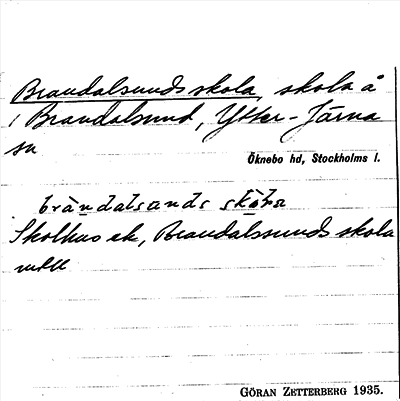 Brandalsunds skola, skola å
/ Brandalsund, Ytter-Järna
sn
Öknebo hd, Stockholms l.
Skolhus ek, Brandalssunds skola
GÖRAN ZETTERBERG 1935.